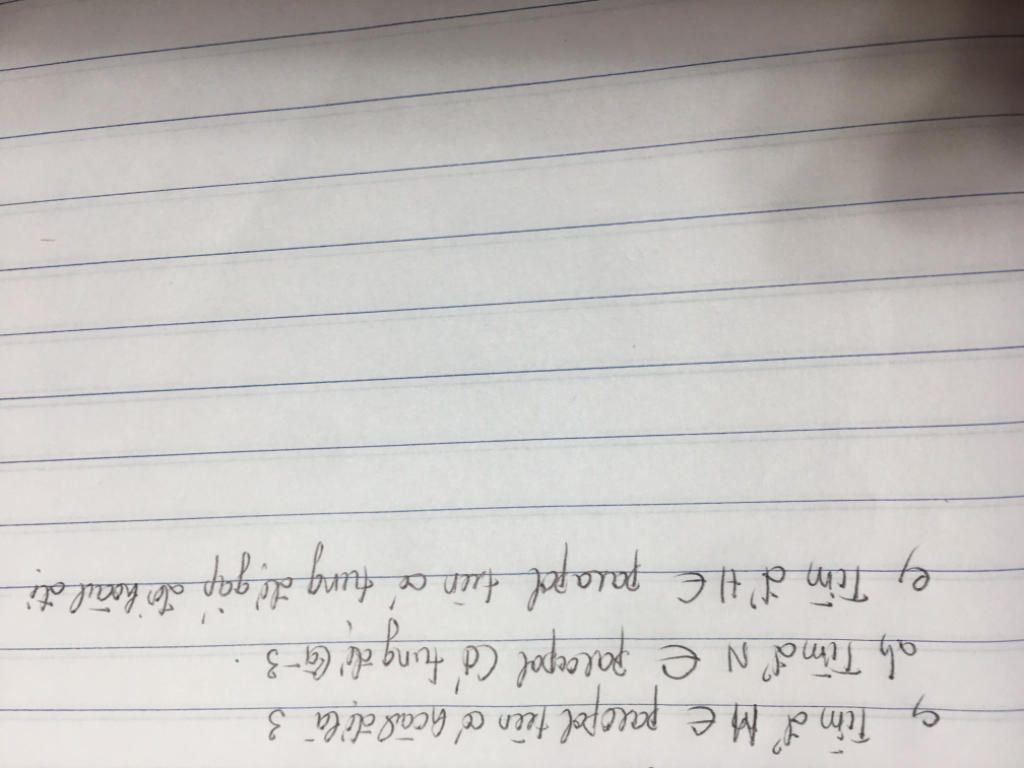 c, Tìm đ' M ∈ parapol trên có hoành độ là 3
d, Tìm đ' N ∈ parapol có tung độ là -3
e, Tìm đ' H ∈ parapol trên có tung độ gấp đôi hoành độ